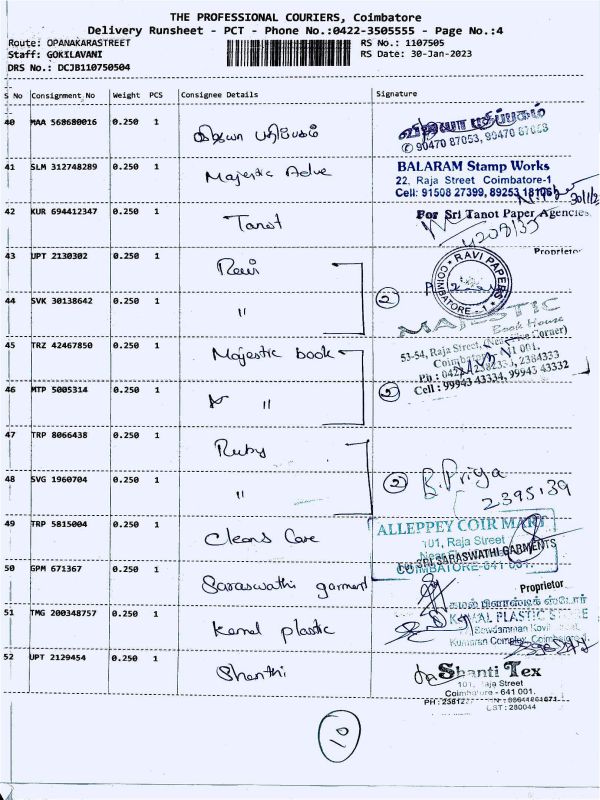 THE PROFESSIONAL COURIERS, Coimbatore
Delivery Runsheet - PCT - Phone No.:0422-3505555 - Page No.:4
Route: OPANAKARASTREET RS No.: 1107505
Staff: GOKILAVANI RS Date: 30-Jan-2023
DRS No.: DCJB110750504
S No Consignment No Weight PCS Consignee Details Signature
40 MAA 568680016 0.250 1
பதிப்பகம்
✆ 90470 87053, 90470 87053
41 SLM 312748289 0.250 1 Majestic Adve
BALARAM Stamp Works
22, Raja Street Coimbatore-1
Cell: 91508 27399, 89253 18106
42 KUR 694412347 0.250 1 Tanot
For Sri Tanot Paper Agencies
Proprietor
43 UPT 2130302 0.250 1 Ravi
RAVI PAPERS
COIMBATORE - 1
44 SVK 30138642 0.250 1 " 2
MAJESTIC
Book House
45 TRZ 42467850 0.250 1 Majestic book
53-54, Raja Street, Corner)
46 MTP 5005314 0.250 1 " 2
Cell : 99943 43334, 99943 43332
47 TRP 8066438 0.250 1 Ruby
48 SVG 1960704 0.250 1 " 2 B. Priya
2395139
49 TRP 5815004 0.250 1 Cleans Care
ALLEPPEY COIR MART
101, Raja Street
COIMBATORE-641 001.
50 GPM 671367 0.250 1 Saraswathi garment
For SRI SARASWATHI GARMENTS
Proprietor
51 TMG 200348757 0.250 1 Kamal plastic
கமல் பிளாஸ்டிக் ஸ்டோர்
KAMAL PLASTIC STORE
Kumaran Complex, Coimbatore-1.
52 UPT 2129454 0.250 1 Shanthi
Shanti Tex
101, Raja Street
Coimbatore - 641 001.
CST: 280044
10